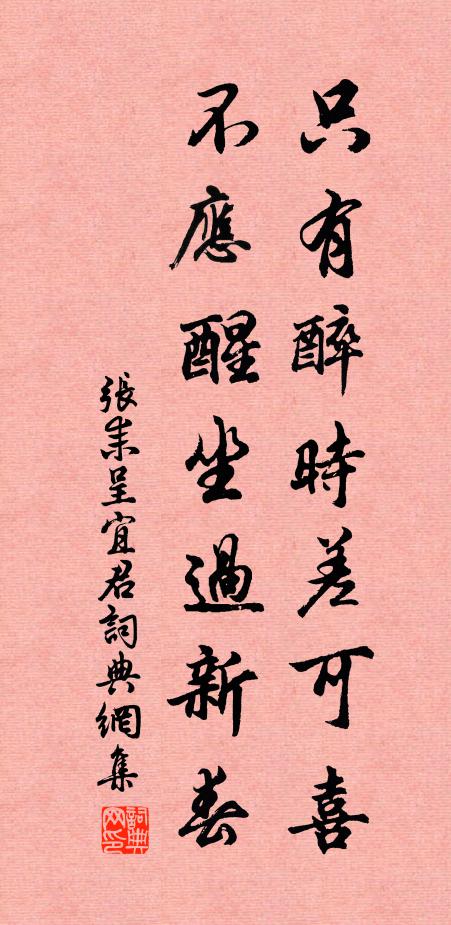 只有醉時差可喜
不應醒坐過新春
張耒呈宜君詞典網集
詞典网印